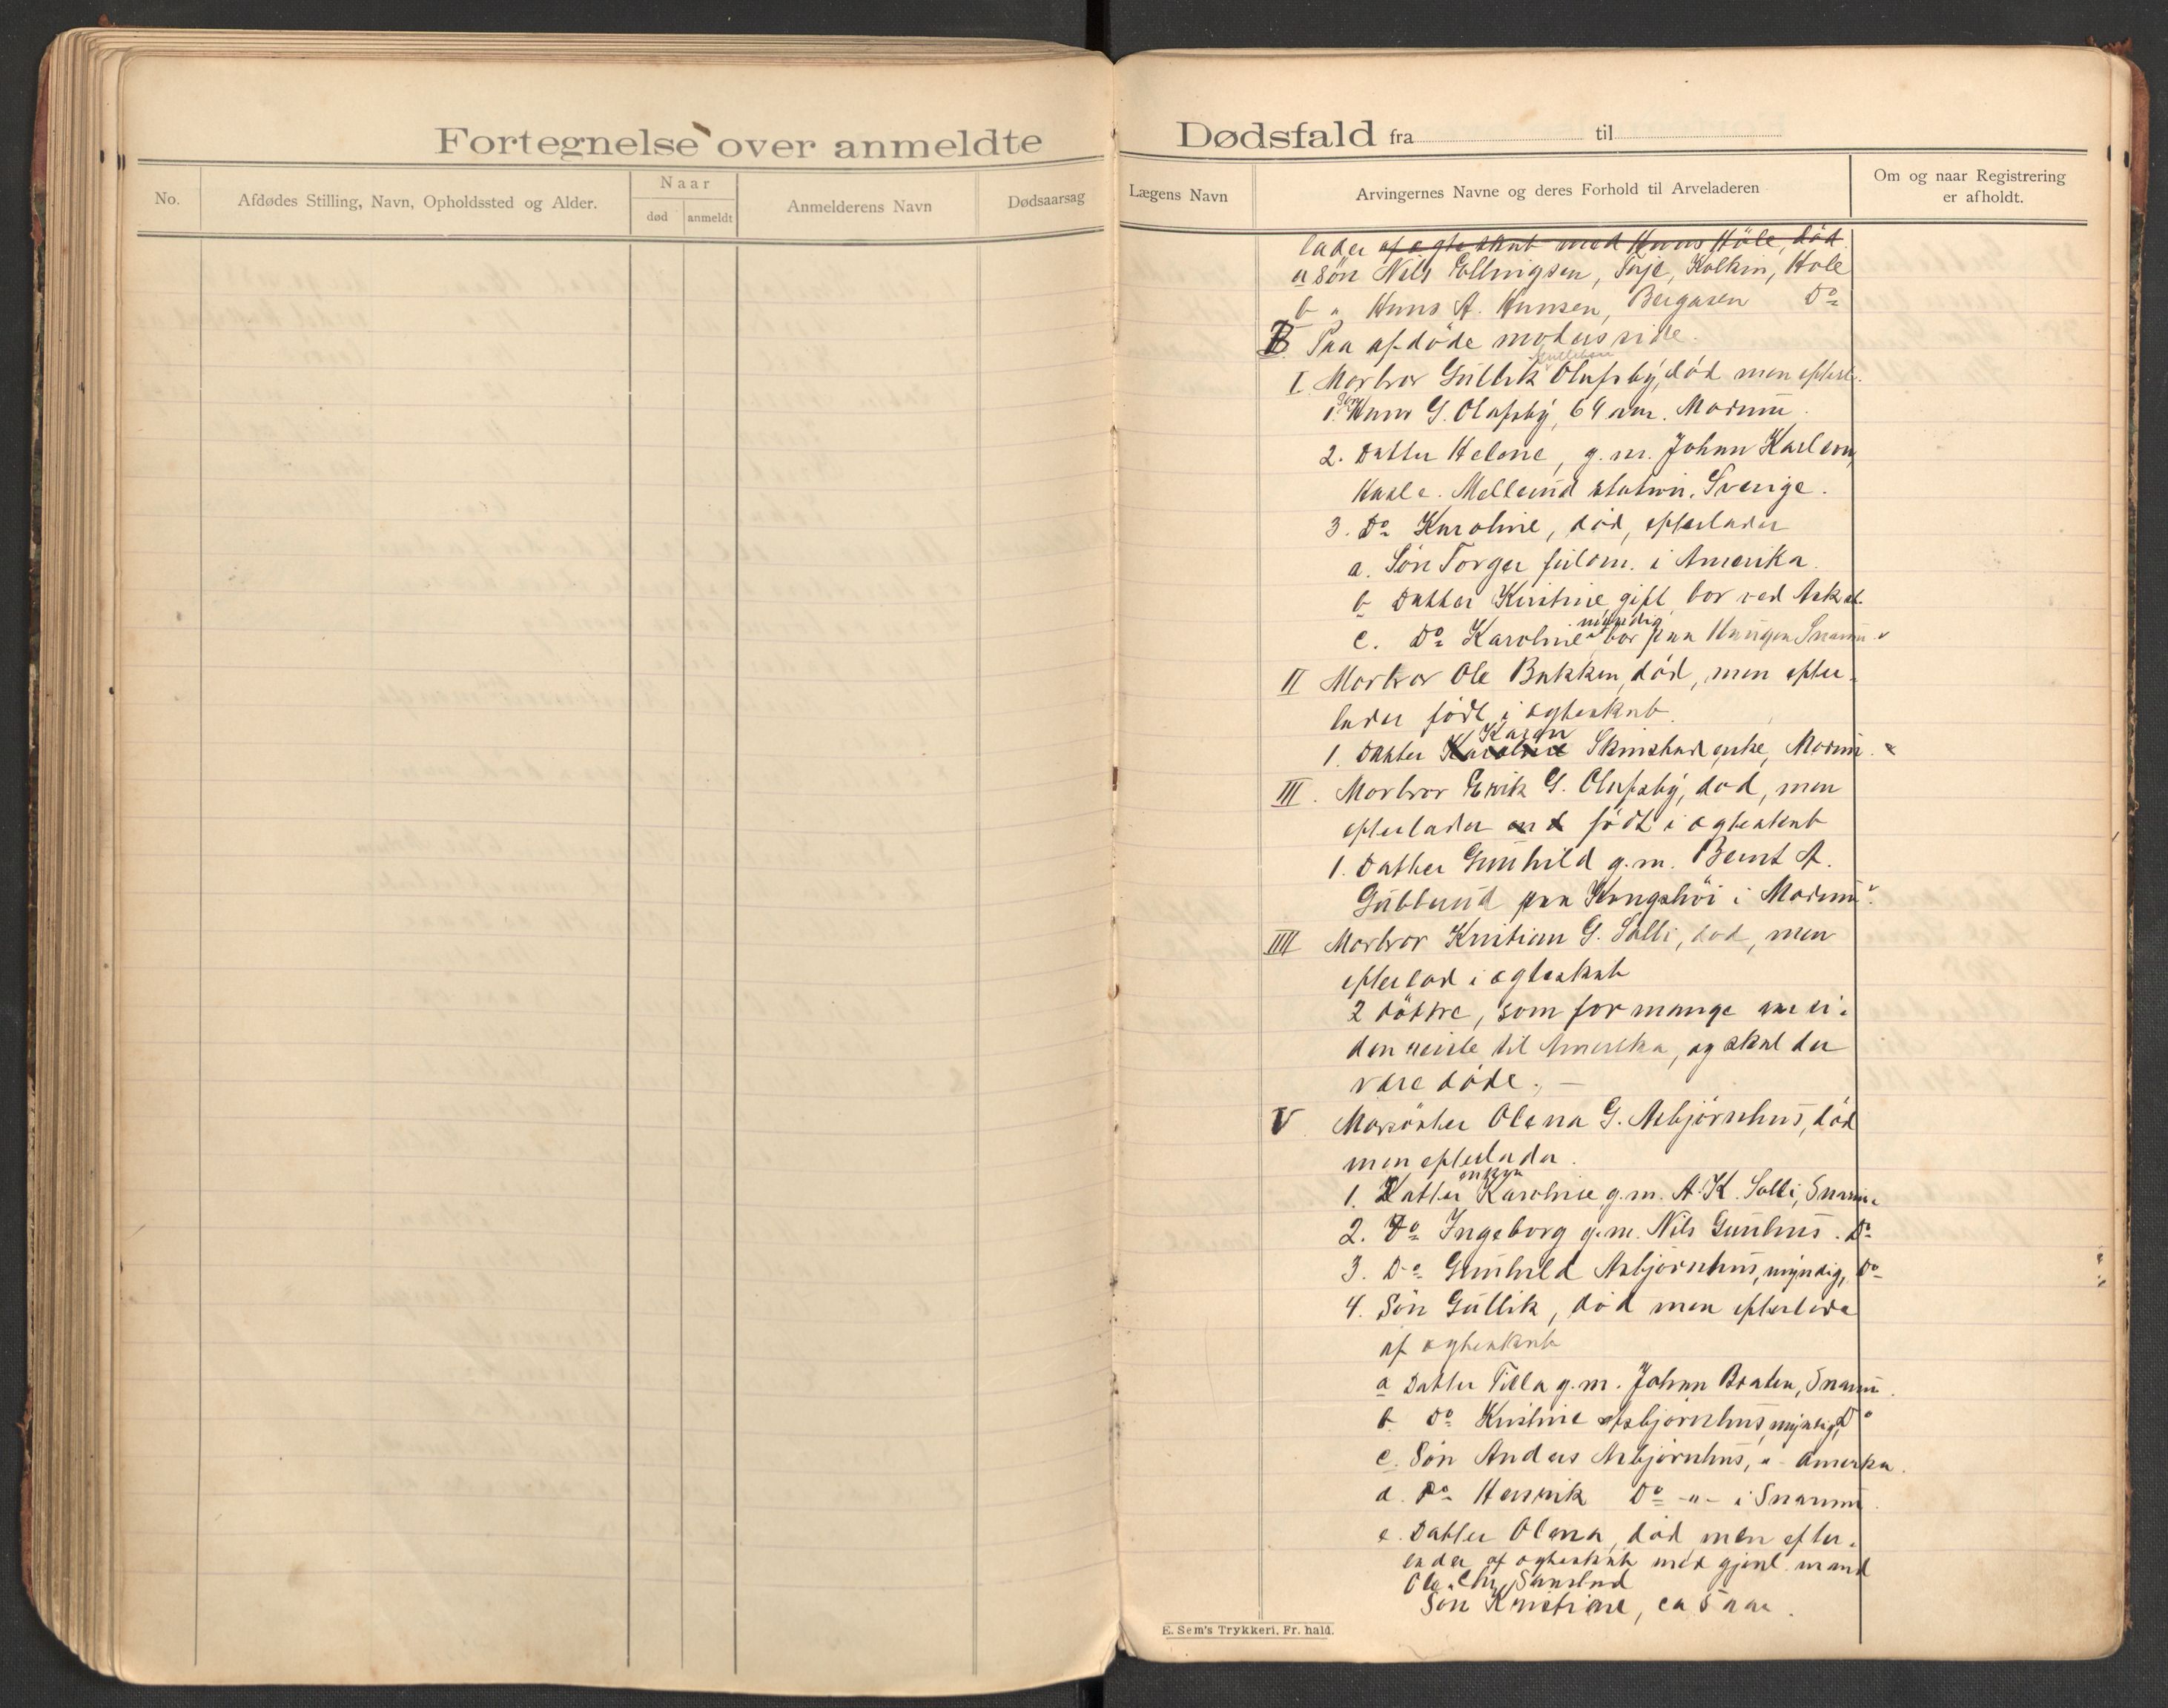 Fortegnelse over anmeldte
Dødsfald fra til
No.
Afdødes Stilling, Navn, Opholdssted og Alder.
Naar
død
anmeldt
Anmelderens Navn
Dødsaarsag
Lægens Navn
Arvingernes Navne og deres Forhold til Arveladeren
Om og naar Registrering
er afholdt.
lader af ægteskab med Hans Höle, död
a Sön Nils Hole
b " Hans A. Hansen, Bergasen Do
B Paa afdöde moders side.
I Morbror Gullik Olafsby, död men efterl.
1. Sön Hans G. Olafsby, 64 aar. Modum.
2. Datter Helene, g. m. Johan Karlson,
Mellerud station, Sverige.
3. Do Karoline, död, efterlader
a. Sön Torger i Amerika.
b Datter Kristine, gift, bor ved Ask st.
c. Do Karoline myndig bor paa Haugen Snarum
II Morbror Ole Bakken, död, men efter-
lader födt i ægteskab.
1. Datter Karoline Karen Skinstad enke, Modum.
III. Morbror Erik G. Olafsby, död, men
efterlader födt i ægteskab
1. Datter Gunhild g. m. Bernt A.
Gubberud paa Kongshöi i Modum.
IIII Morbror Kristian G. Solli, död, men
efterlod i ægteskab
2 döttre, som for mange aar si-
den reiste til Amerika, og skal der
være döde. —
V Morsöster Olena G. Asbjörnhus, död
men efterlader.
1. Datter enken Karoline g. m. A. K. Solli, Snarum
2. Do Ingeborg g. m. Nils Gunhus. Do
3. Do Gunhild Asbjörnhus, myndig, Do
4. Sön Gullik, död men efterlader
af ægteskab
a Datter Tilla g. m. Johan Braten, Snarum.
b. Do Kristine Asbjörnhus, myndig, Do
c. Sön Anders Asbjörnhus, " Amerika.
d. Do Henrik Do -"- i Snarum.
e. Datter Olena, död, men efter-
lader af ægteskab med gjenl. mand
Ole Chr.
Sön Kristian, ca 5 aar.
E. Sem's Trykkeri. Fr. hald.